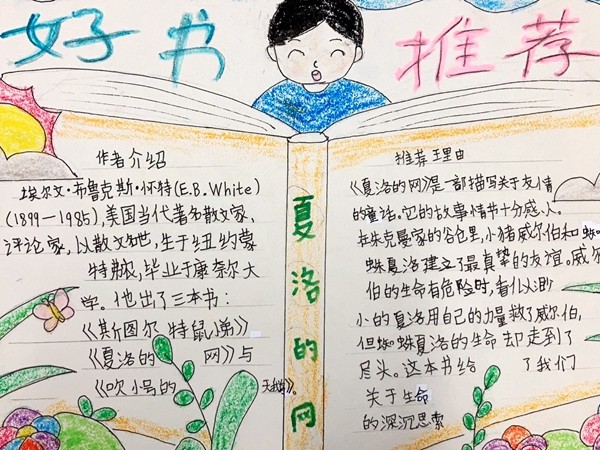 好书
推荐
作者介绍
埃尔文·布鲁克斯·怀特(E.B.White)
(1899-1985),美国当代著名散文家、
评论家,以散文名世,生于纽约蒙
特弗农,毕业于康奈尔大
学。他出了三本书:
《斯图尔特鼠小弟》
《夏洛的 网》与
《吹小号的 天鹅》。
夏洛的网
推荐理由
《夏洛的网》是一部描写关于友情
的童话。它的故事情节十分感人。
在朱克曼家的谷仓里,小猪威尔伯和蜘
蛛夏洛建立了最真挚的友谊。威尔
伯的生命有危险时,看似渺
小的夏洛用自己的力量救了威尔伯,
但蜘蛛夏洛的生命却走到了
尽头。这本书给 了我们
关于生命
的深沉思索